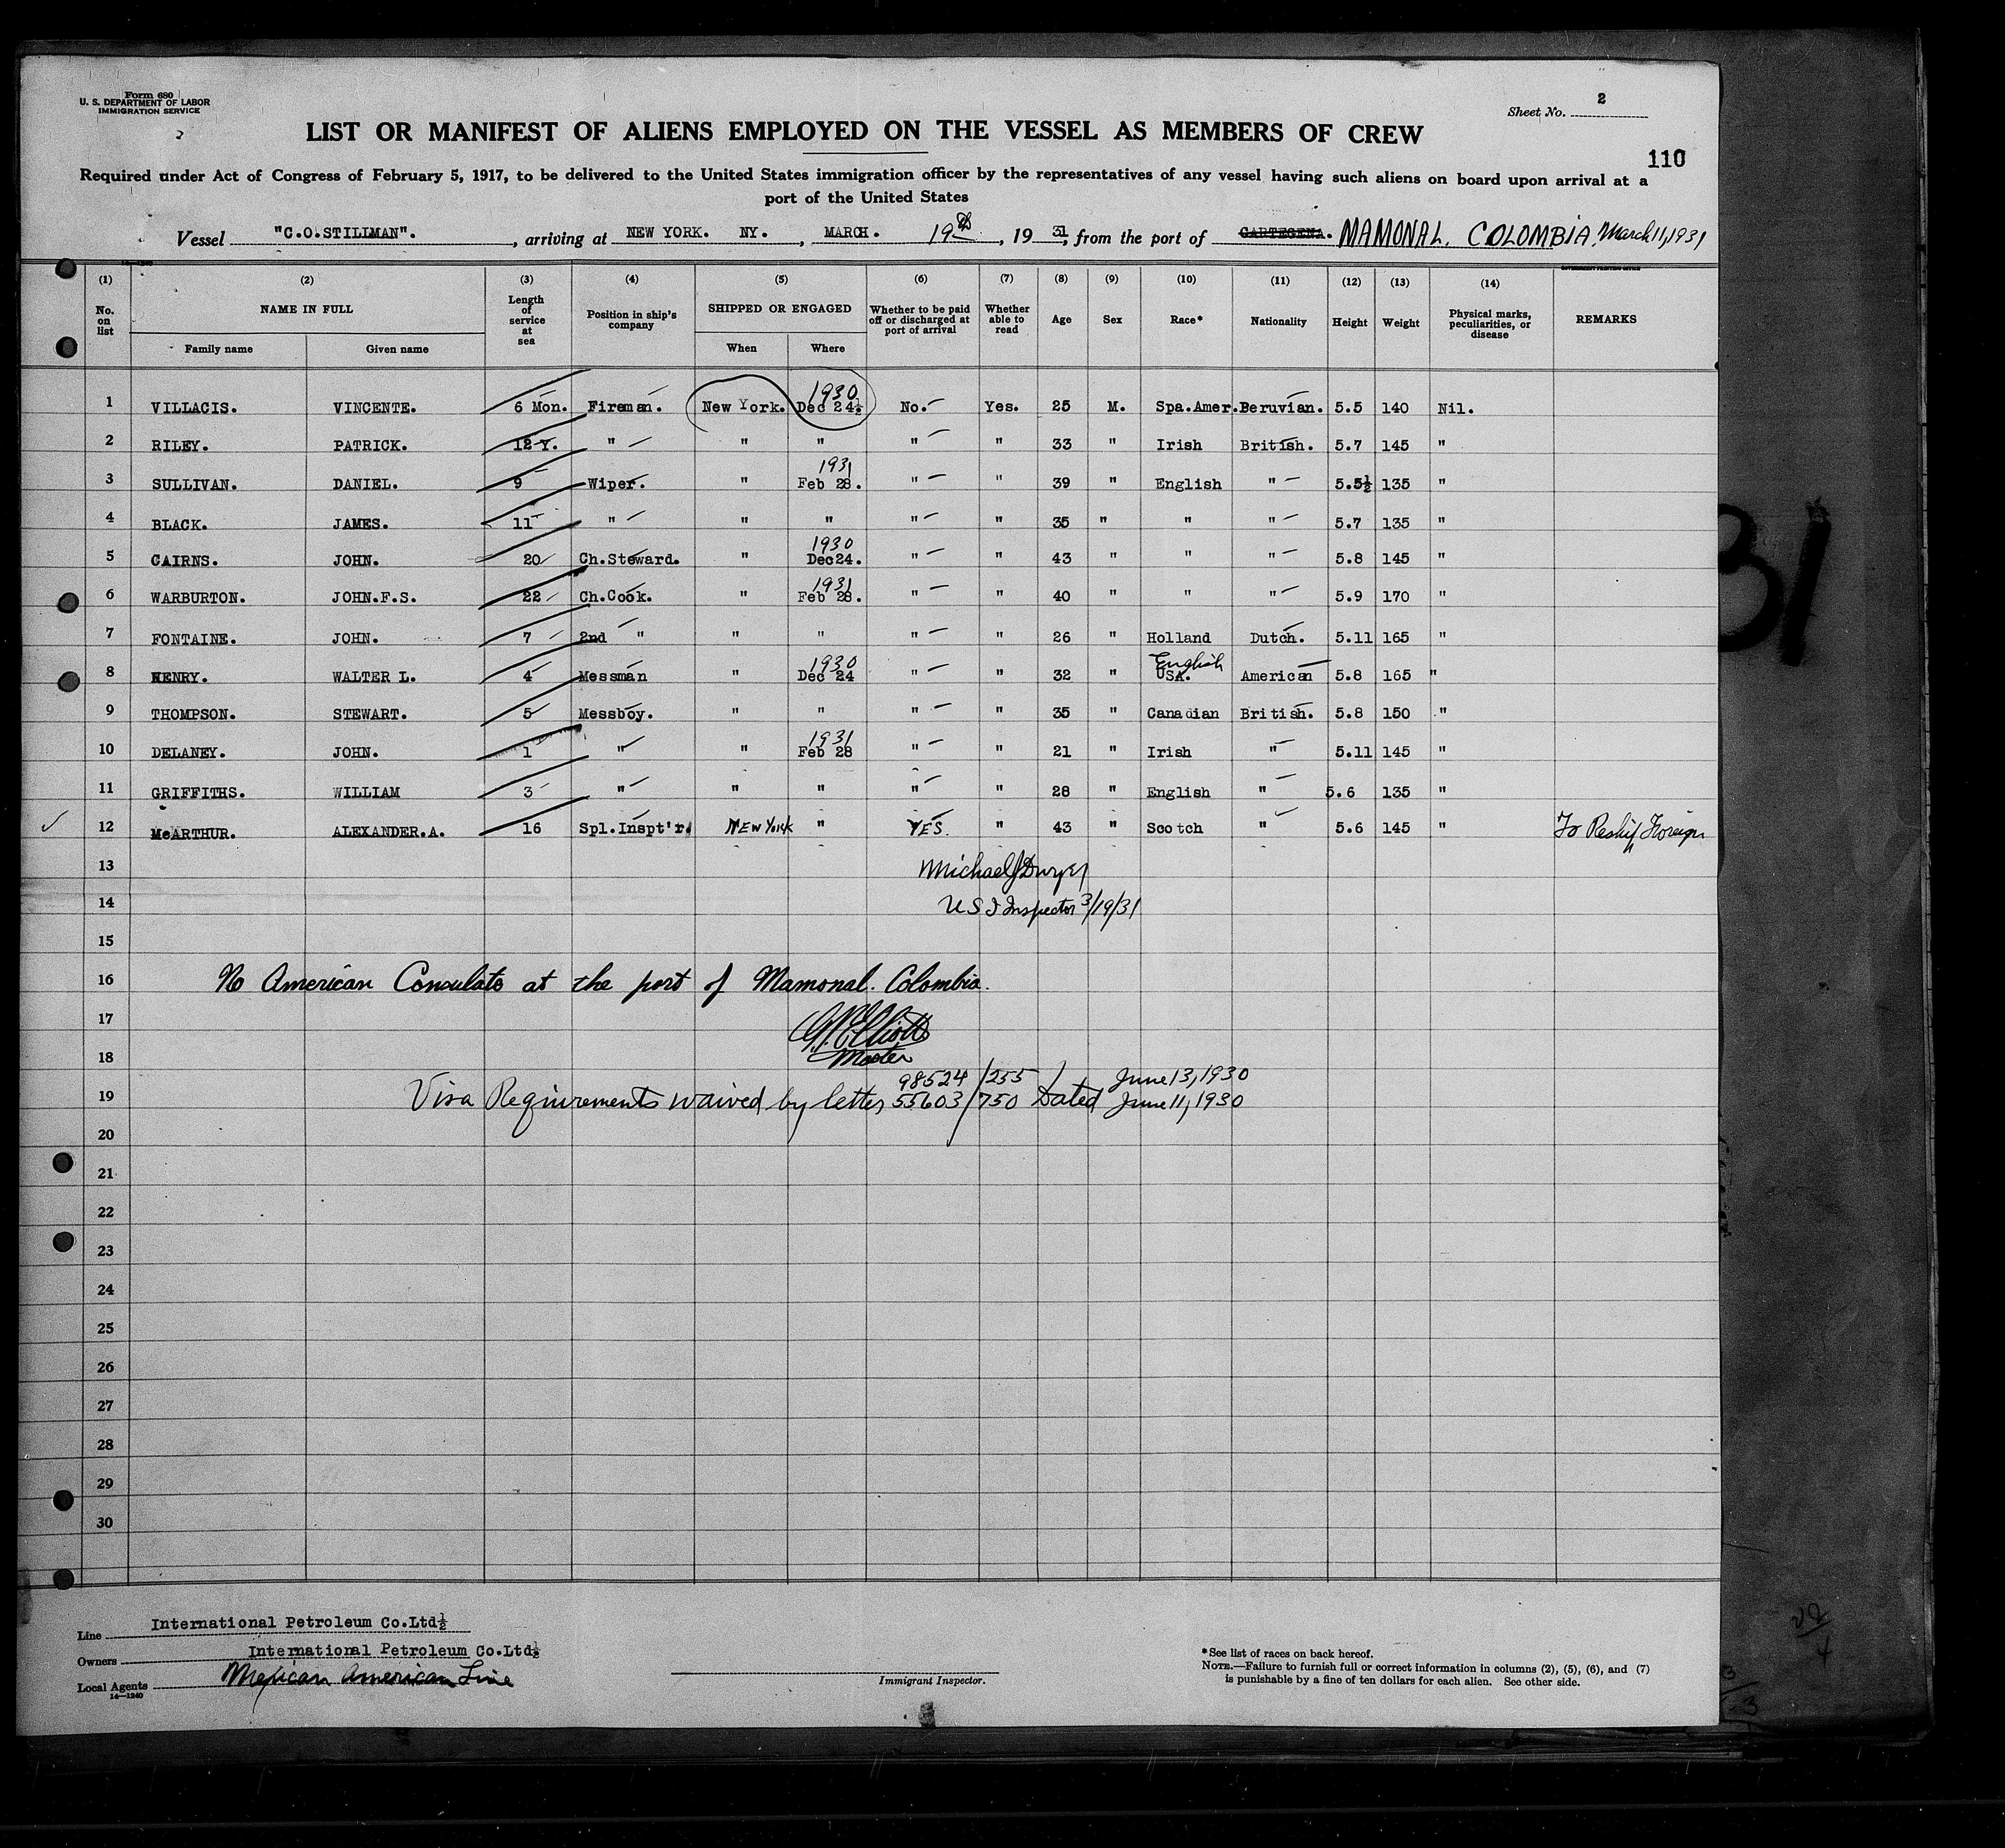 Form 680
U. S. DEPARTMENT OF LABOR
IMMIGRATION SERVICE
Sheet No. 2
LIST OR MANIFEST OF ALIENS EMPLOYED ON THE VESSEL AS MEMBERS OF CREW
110
Required under Act of Congress of February 5, 1917, to be delivered to the United States immigration officer by the representatives of any vessel having such aliens on board upon arrival at a
port of the United States
Vessel "C.O.STILLMAN". , arriving at NEW YORK. NY. , MARCH. 19th , 19 31, from the port of CARTEGENA. MAMONAL. COLOMBIA. March 11, 1931
(1) (2) (3) (4) (5) (6) (7) (8) (9) (10) (11) (12) (13) (14)
No. on list NAME IN FULL Length of service at sea Position in ship's company SHIPPED OR ENGAGED Whether to be paid off or discharged at port of arrival Whether able to read Age Sex Race* Nationality Height Weight Physical marks, peculiarities, or disease REMARKS
Family name Given name When Where
1 VILLACIS. VINCENTE. 6 Mon. Fireman. New York. 1930 Dec 24½ No. Yes. 25 M. Spa.Amer. Beruvian. 5.5 140 Nil.
2 RILEY. PATRICK. 12 Y. " " " " " 33 " Irish British. 5.7 145 "
3 SULLIVAN. DANIEL. 9 Wiper. " 1931 Feb 28. " " 39 " English " 5.5½ 135 "
4 BLACK. JAMES. 11 " " " " " 35 " " " 5.7 135 "
5 CAIRNS. JOHN. 20 Ch.Steward. " 1930 Dec24. " " 43 " " " 5.8 145 "
6 WARBURTON. JOHN.F.S. 22 Ch.Cook. " 1931 Feb 28. " " 40 " " " 5.9 170 "
7 FONTAINE. JOHN. 7 2nd " " " " " 26 " Holland Dutch. 5.11 165 "
8 HENRY. WALTER L. 4 Messman " 1930 Dec 24 " " 32 " English USA. American 5.8 165 "
9 THOMPSON. STEWART. 5 Messboy. " " " " 35 " Canadian British. 5.8 150 "
10 DELANEY. JOHN. 1 " " 1931 Feb 28 " " 21 " Irish " 5.11 145 "
11 GRIFFITHS. WILLIAM 3 " " " " " 28 " English " 5.6 135 "
12 McARTHUR. ALEXANDER.A. 16 Spl.Inspt'r. NEW YORK " YES. " 43 " Scotch " 5.6 145 " To Reship Foreign
13 Michael J Dwyer
14 U S I Inspector 3/19/31
15
16 No American Consulate at the port of Mamonal. Colombia.
17 Elliott
18 Master
98524/255 June 13, 1930
19 Visa Requirements waived by letter 55603/750 Dated June 11, 1930
20
21
22
23
24
25
26
27
28
29
30
Line International Petroleum Co.Ltd½
Owners International Petroleum Co.Ltd½
Local Agents Mexican American Line
14—1240
Immigrant Inspector.
*See list of races on back hereof.
NOTE.—Failure to furnish full or correct information in columns (2), (5), (6), and (7)
is punishable by a fine of ten dollars for each alien. See other side.
31